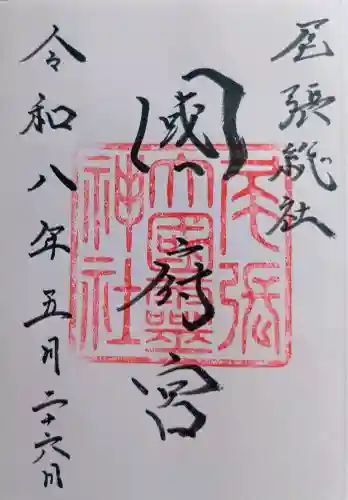 尾張総社
國府宮
尾張
大國霊
神社
令和八年五月二十六日